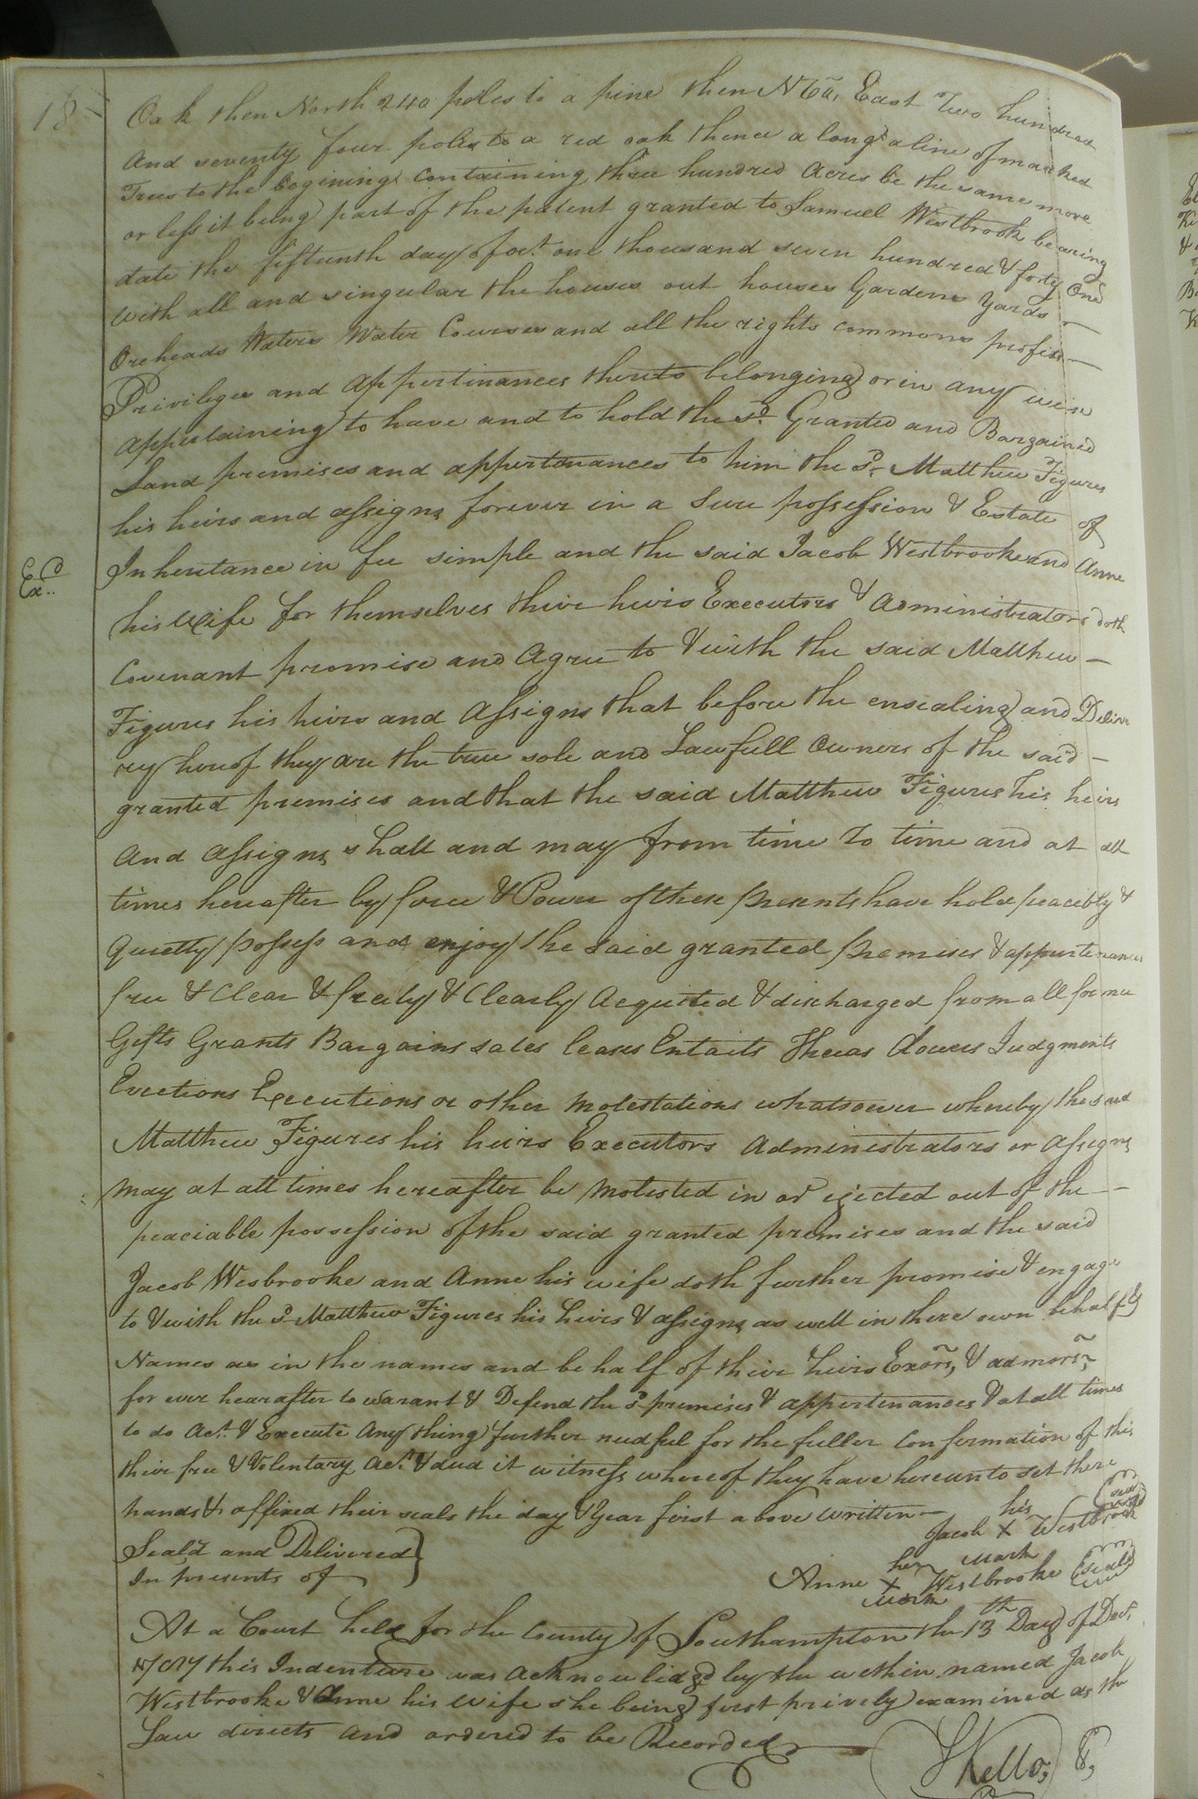 18
Oak then North 240 poles to a pine then N 60, East Two hundred
And seventy four poles to a red oak thence a long a line of marked
Trees to the begining containing three hundred Acres be the same more
or less it being part of the patent granted to Samuel Westbrook bearing
date the fifteenth day of oct. one thousand seven hundred & forty One
with all and singular the houses out houses Gardens yards
Orcheads Waters Water Courses and all the rights commons profits
Privileges and Appertinances thereto belonging or in any wise
Appertaining to have and to hold the sd. Granted and Bargained
Land premises and appertenances to him the sd. Matthew Figures
his heirs and assigns forever in a Sure possession & Estate of
Ex.d
Inheritance in fee simple and the said Jacob Westbrooke and Anne
his Wife for themselves thire heirs Executors & Administrators doth
Covenant promise and Agree to & with the said Matthew
Figures his heirs and Assigns that before the ensealing and Delive
rey hereof they are the true sole and Lawfull Owners of the said
granted premises and that the said Matthew Figures his heirs
And Assigns shall and may from time to time and at all
times hereafter by force & Power of these presents have hold peacebly &
Quietly possess and enjoy the said granted premises & appurtenances
free & Clear & freely & Clearly Acquited & discharged from all former
Gifts Grants Bargains sales leases Entails Dowers Judgments
Evictions Executions or other molestations whatsoever whereby the said
Matthew Figures his heirs Executors Administrators or Assigns
may at all times hereafter be molested in or ejected out of the
peaciable possession of the said granted premises and the said
Jacob Wesbrooke and Anne his wife doth further promise & engage
to & with the sd Matthew Figures his heirs & assigns as well in there own behalf &
Names as in the names and behalf of thire heirs Exors, & admors,
for ever hearafter to warant & Defend the sd premises & appertinances & at all times
to do Act. & Execute Any thing further needful for the fuller Conformation of this
thire free & Volentary Act & deed it witness whereof they have hereunto set there
hands & affixed their seals the day & Year first above written
his
Jacob X Westbrook (seal)
mark
Seal'd and Delivered
In presents of
her
Anne X Westbrooke (seal)
mark
At a Court held for the County of Southampton the 13th Day of Decr.
this Indenture was Acknowlidged by the within named Jacob
Westbrooke & Anne his Wife she being first prively examined as the
Law directs and ordered to be Recorded